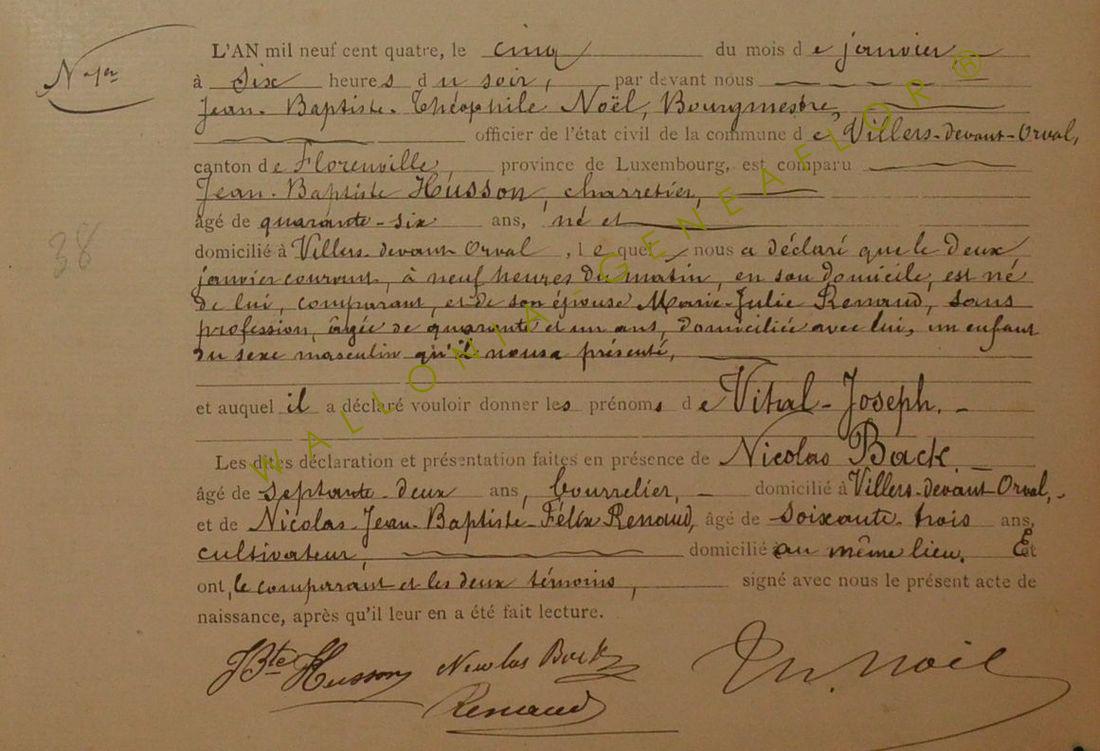 N° 1er
L'AN mil neuf cent quatre, le cinq du mois de janvier
à six heures du soir, par devant nous
Jean-Baptiste-Théophile Noël, Bourgmestre,
officier de l'état civil de la commune de Villers-devant-Orval,
canton de Florenville, province de Luxembourg, est comparu
Jean-Baptiste Husson, charretier,
âgé de quarante-six ans, né et
domicilié à Villers-devant-Orval, lequel nous a déclaré que le deux
janvier courant, à neuf heures du matin, en son domicile, est né
de lui, comparant, et de son épouse Marie-Julie Renaud, sans
profession, âgée de quarante et un ans, domiciliée avec lui, un enfant
du sexe masculin qu'il nous a présenté,
38
et auquel il a déclaré vouloir donner les prénoms de Vital-Joseph.
Les dites déclaration et présentation faites en présence de Nicolas Back.
âgé de septante-deux ans, bourrelier, domicilié à Villers-devant-Orval,
et de Nicolas-Jean-Baptiste-Félix Renaud, âgé de soixante-trois ans,
cultivateur, domicilié au même lieu. Et
ont, le comparant et les deux témoins, signé avec nous le présent acte de
naissance, après qu'il leur en a été fait lecture.
JBte Husson Nicolas Back Th. Noël
Renaud
WALLONIA-GENEAFLOR ®